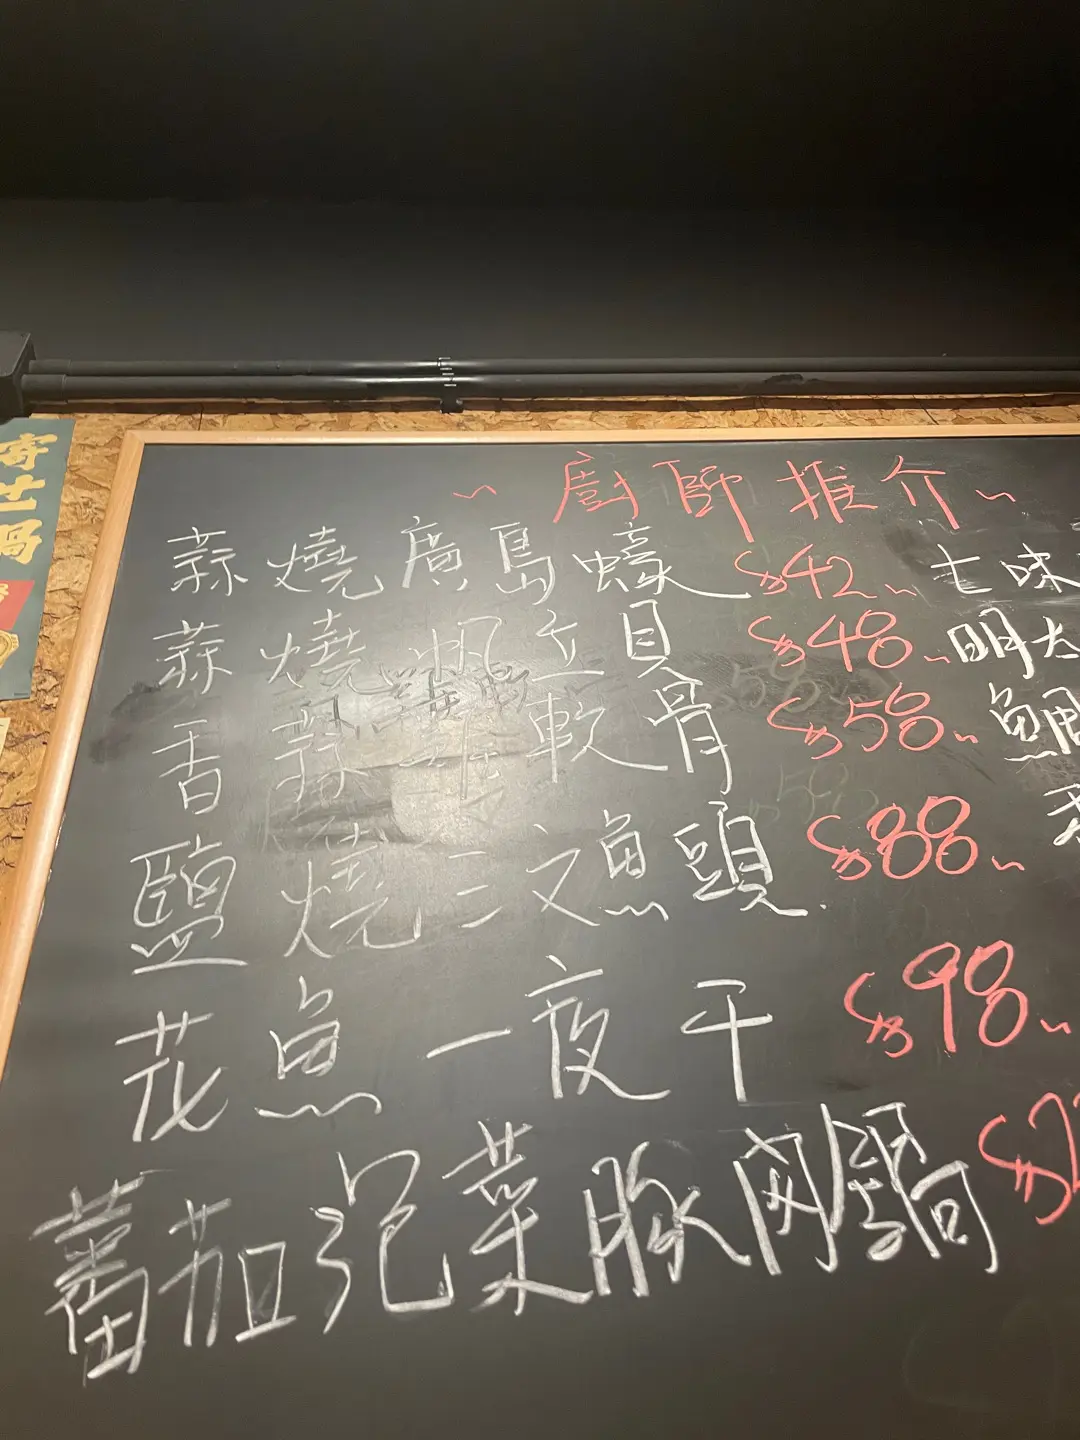 ~ 廚師推介 ~
蒜燒廣島蠔 $42~ 七味
蒜燒帆立貝 $48~ 明太
香蒜雞軟骨 $58~
鹽燒三文魚頭 $88~
花魚一夜干 $98~
蕃茄泡菜豚肉鍋 $
寄士鍋